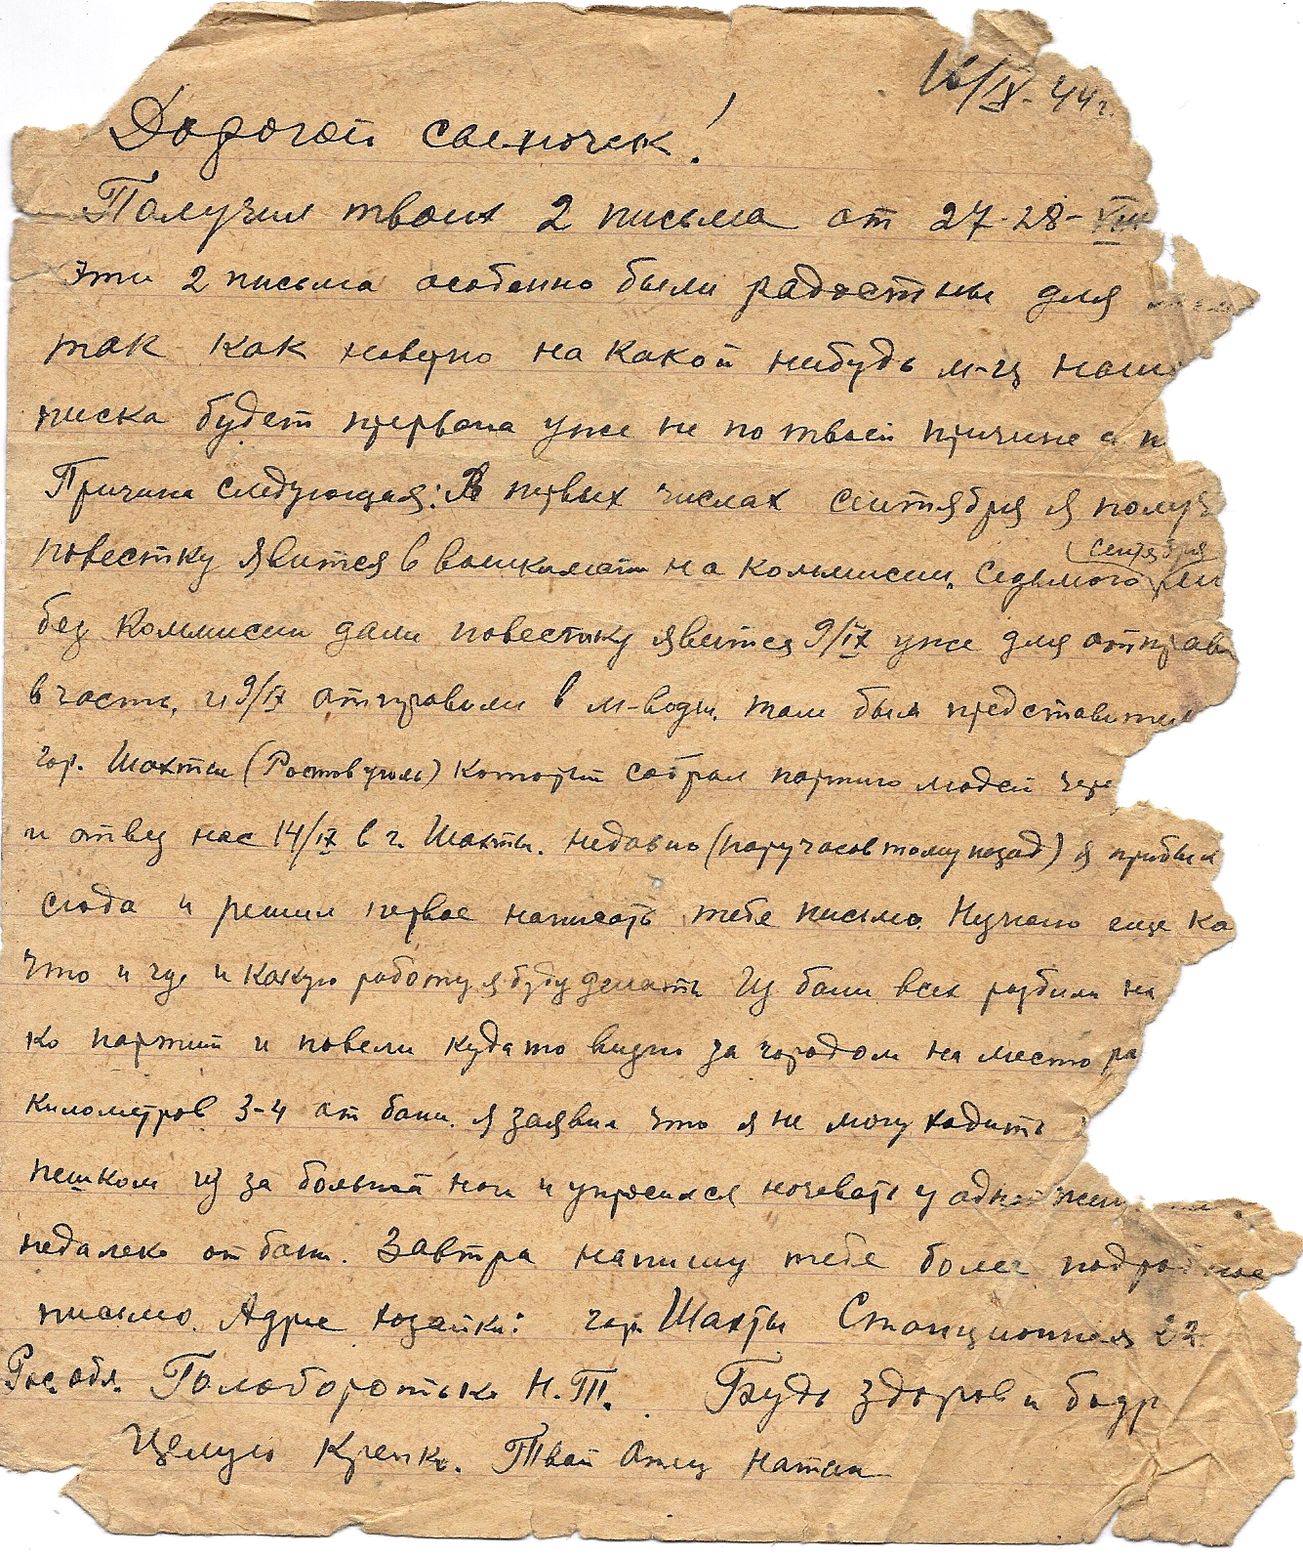 16/IX-44г.
Дорогой сыночек!
Получил твоих 2 письма от 27-28-VIII
Эти 2 письма особенно были радостны для
так как наверно на какой нибудь м-ц наш
писка будет прервана уже не по твоей причине а п
Причина следующая: В первых числах сентября я получ
(сентября
повестку явится в военкомат на коммисии. Седьмого
без коммисии дали повестку явится 9/IX уже для отправ
в часть, и 9/IX отправили в м-воды, там был представител
гор. Шахты (Ростовуголь) который собрал партию людей
и отвез нас 14/IX в г. Шахты. недавно (пару часов тому назад) я прибыл
сюда и решил первое написать тебе письмо. Незнаю еще ка
что и где и какую работу я буду делать Из бани всех разбили на
ко партий и повели куда то видно за городом на место ра
километров 3-4 от бани. я заявил что я не могу ходить
пешком из за больной ноги и упросился ночевать у одной
недалеко от бани. Завтра напишу тебе более подробное
письмо. Адрес хозяйки: гор. Шахты Станционная 22
Рос. обл. Голобородько Н.Т. Будь здоров и бодр
Целую крепко. Твой отец Натан